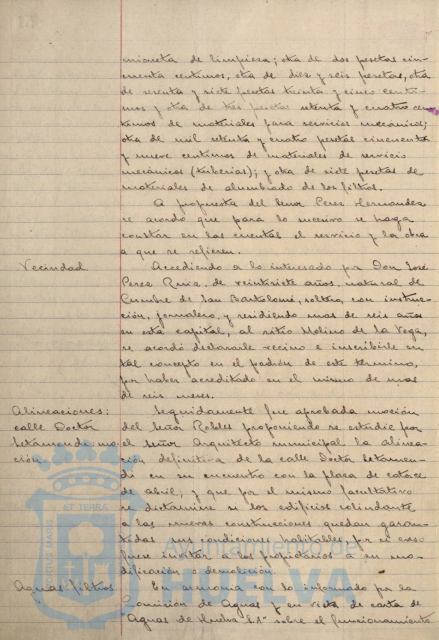 miqueta de limpieza; otra de dos pesetas cin-
cuenta centimos, otra de diez y seis pesetas, otra
de setenta y siete pesetas treinta y cinco centi-
mos y otra de tres pesetas setenta y cuatro cen-
timos de materiales para servicios mecanicos;
otra de mil setenta y cuatro pesetas cincuenta
y nueve centimos de materiales de servicio
mecánicos (tuberias); y otra de siete pesetas de
materiales de alumbrado de los filtros.
A propuesta del Señor Perez Hernandez
se acordó que para lo sucesivo se haga
constar en las cuentas el servicio y la obra
a que se refieren.
Vecindad
Accediendo a lo interesado por Don José
Perez Ruiz, de veintisiete años, natural de
Cumbre de San Bartolomé, soltero, con instruc-
ción, jornalero, y residiendo mas de seis años
en esta capital, al sitio Molino de la Vega,
se acordó declararle vecino e inscribirle en
tal concepto en el padrón de este termino,
por haber acreditado en el mismo de mas
de seis meses.
Alineaciones:
calle Doctor
Letamendi. mo-
ción.
Seguidamente fue aprobada moción
del Señor Robles proponiendo se estudie por
el Señor Arquitecto municipal la alinea-
ción definitiva de la calle Doctor Letamen-
di en su encuentro con la plaza de catorce
de abril, y que por el mismo facultativo
se dictamine si los edificios colindante
a las nuevas construcciones quedan garan-
tidas sus condiciones habitables, por si caso
fuese invitar a los propietarios a su mo-
dificación o demolición.
Aguas-filtros.
En armonia con lo informado por la
Comision de Aguas y en vista de carta de
Aguas de Huelva S.A. sobre el funcionamiento
ET TERRA
PORTUS MARIS
HUELVA